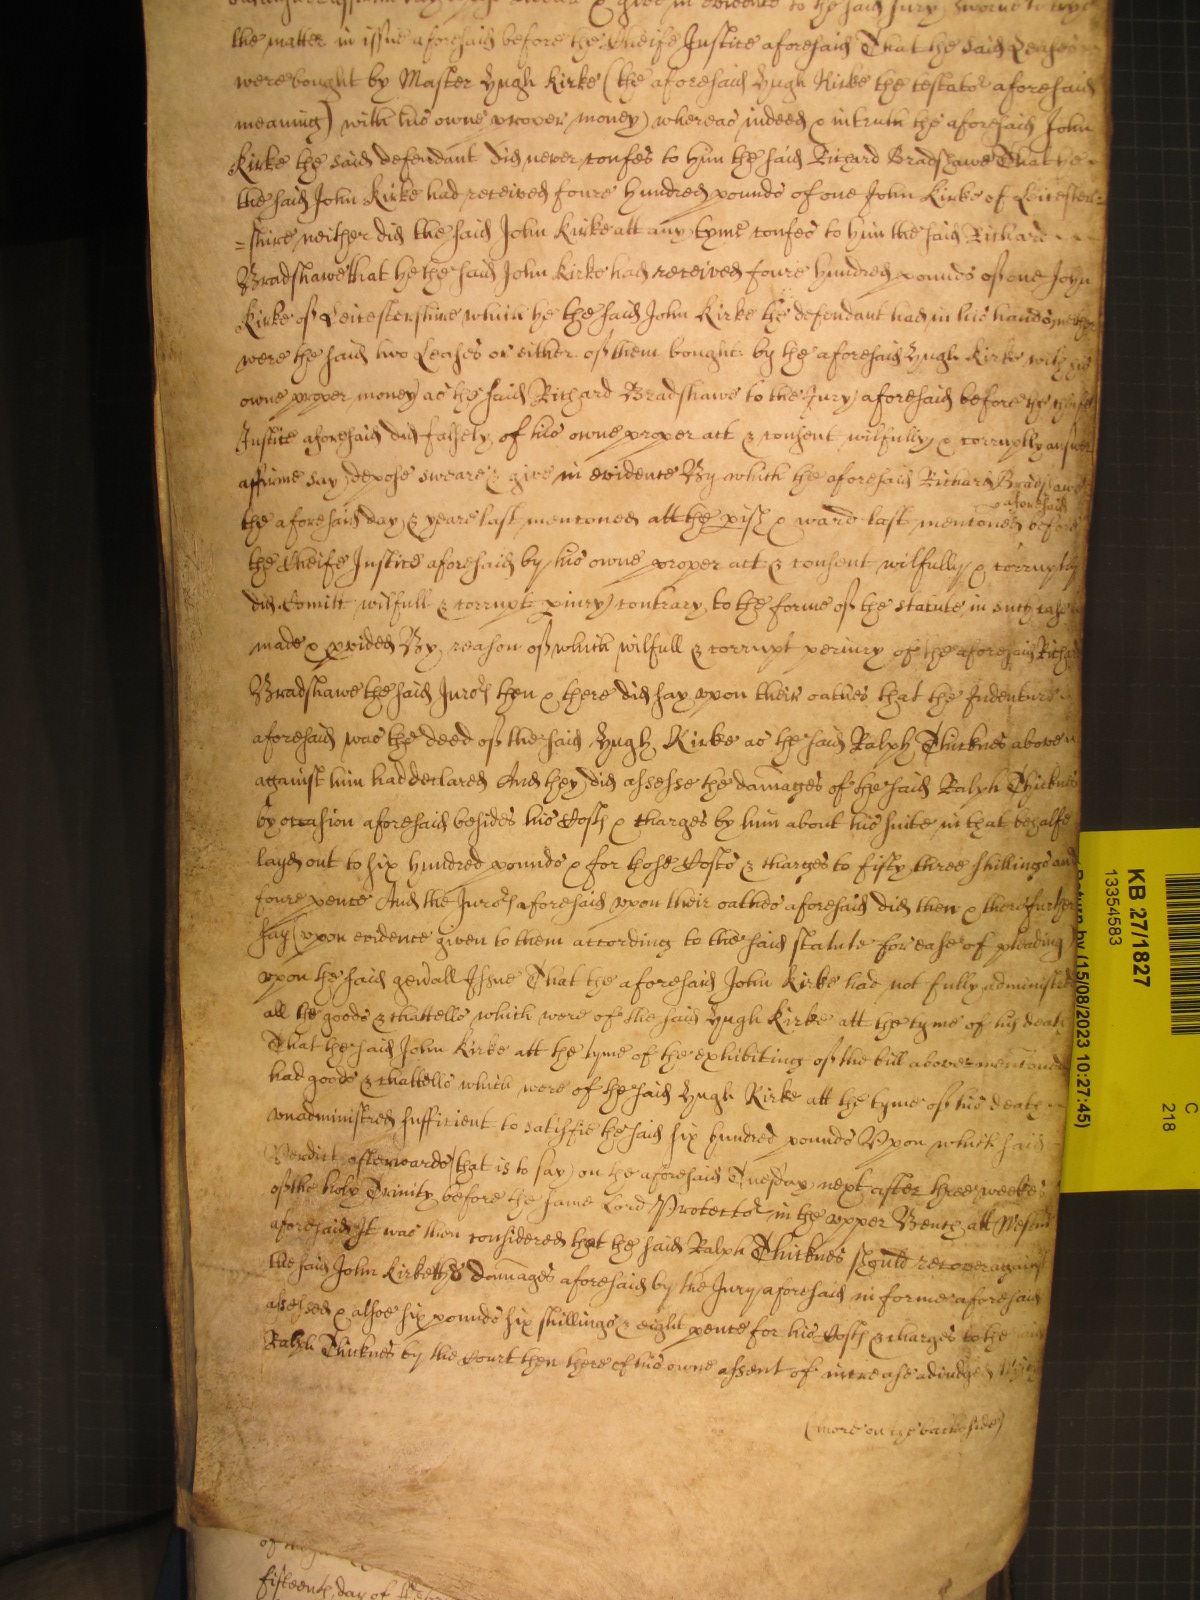 give in evidence to the said Jury sworne to trye
the matter in issue aforesaid before the Cheife Justice aforesaid That the said Leases
were bought by Master Hugh Kirke (the aforesaid Hugh Kirke the testator aforesaid
meaning) with his owne proper money) whereas indeed & in truth the aforesaid John
Kirke the said defendant did never confes to him the said Richard Bradshawe That he
the said John Kirke had received foure hundred pounds of one John Kirke of Leicester=
=shire neither did the said John Kirke att any tyme confes to him the said Richard
Bradshawe that he the said John Kirke had received foure hundred pounds of one John
Kirke of Leicestershire which he the said John Kirke the defendant had in his hands neither
were the said two Leases or either of them bought by the aforesaid Hugh Kirke with his
owne proper money as the said Richard Bradshawe to the Jury aforesaid before the Cheife
Justice aforesaid did falsely of his owne proper act & consent wilfully & corruptly answer
affirme say depose sweare & give in evidence By which the aforesaid Richard Bradshawe
the aforesaid day & yeare last mentoned att the pish & ward last mentoned aforesaid before
the Cheife Justice aforesaid by his owne proper act & consent wilfully & corruptly
did Comitt wilfull & corrupt piury contrary to the forme of the statute in such case
made & pvided By reason of which wilfull & corrupt periury of the aforesaid Richard
Bradshawe the said Juro:rs then & there did say upon their oathes that the Indenture
aforesaid was the deed of the said Hugh Kirke as the said Ralph Thicknes above
against him had declared And they did assesse the damages of the said Ralph Thicknes
by occasion aforesaid besides his Costs & charges by him about his suite in that behalfe
layd out to six hundred pounds & for those Costs & charges to fifty three shillings and
foure pence And the Juro:rs aforesaid upon their oathes aforesaid did then & there further
say (upon evidence given to them according to the said statute for ease of pleading
upon the said genall Issue That the aforesaid John Kirke had not fully administred
all the goods & chattells which were of the said Hugh Kirke att the tyme of his death
That the said John Kirke att the tyme of the exhibiting of the bill above mentoned
had goods & chattells which were of the said Hugh Kirke att the tyme of his death
unadministred sufficient to satisfie the said six hundred pounds Upon which said
Verdict afterwards (that is to say) on the aforesaid Tuesday next after three weekes
of the holy Trinity before the same Lord Protector in the upper Bench att Westm
aforesaid It was then considered that the said Ralph Thicknes should recover against
the said John Kirke the damages aforesaid by the Jury aforesaid in forme aforesaid
assessed & alsoe six pounds six shillings & eight pence for his Costs & charges to the said
Ralph Thicknes by the Court then there of his owne assent of increase adiudged
(more on the backside)
fifteenth day of
KB 27/1827
13354583
Return by (15/08/2023 10:27:45)
C
218